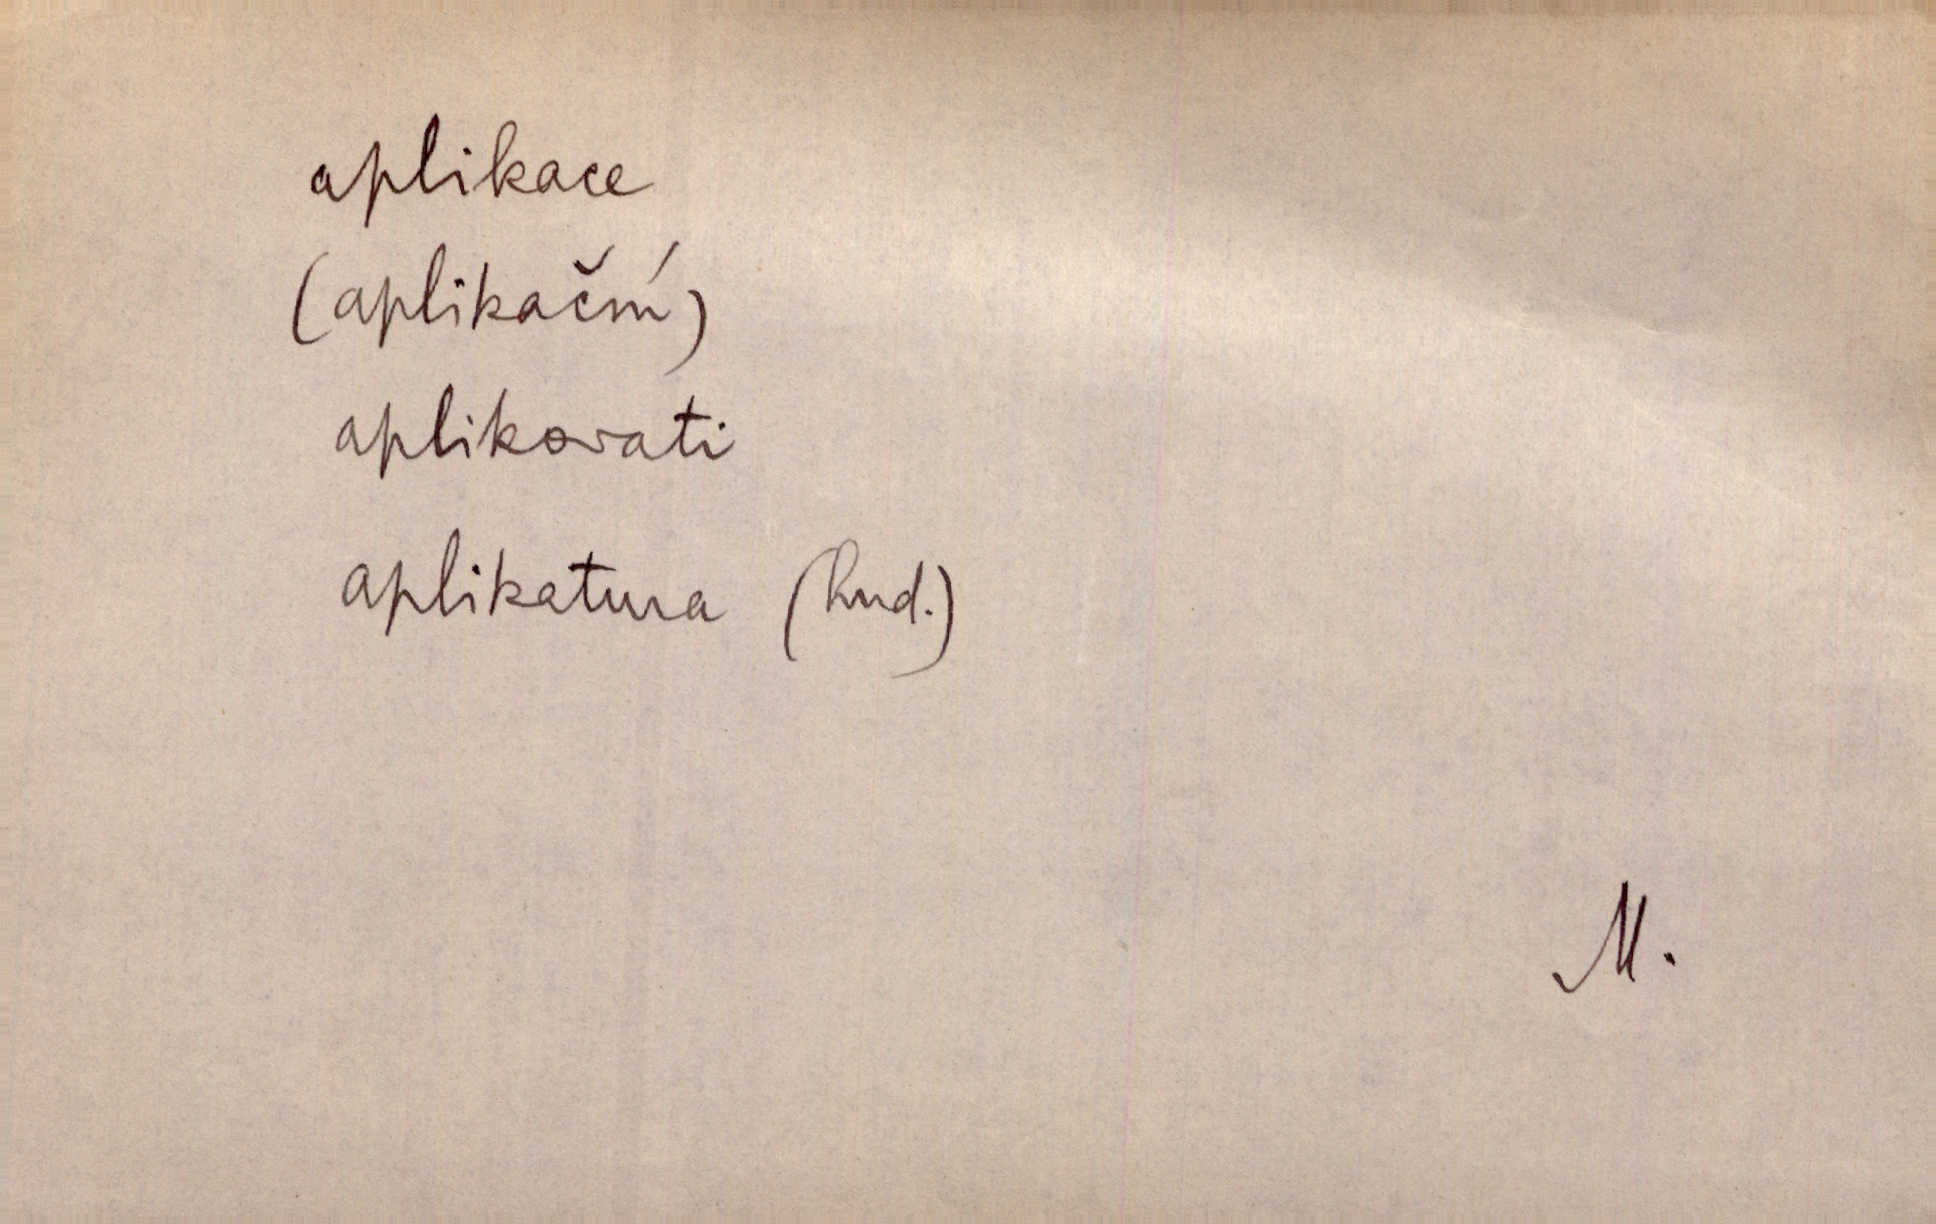 aplikace
(aplikační)
aplikovati
aplikatura (hud.)
M.